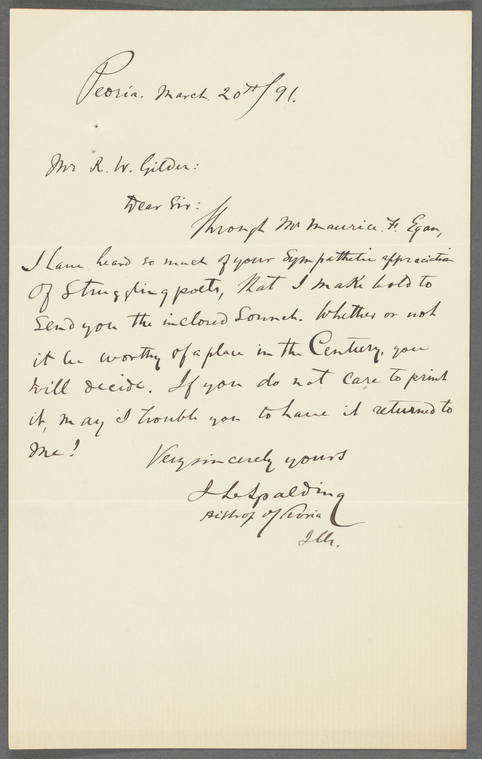 Peoria. March. 20th/91.
Mr R. W. Gilder:
Dear Sir:
Through Mr Maurice. F. Egan,
I have heard so much of your sympathetic appreciation
of struggling poets, that I make bold to
send you the inclosed Sonnet. Whether or not
it be worthy of a place in the Century, you
will decide. If you do not care to print
it, may I trouble you to have it returned to
me?
Very sincerely yours
J L Spalding
Bishop of Peoria
Ills.